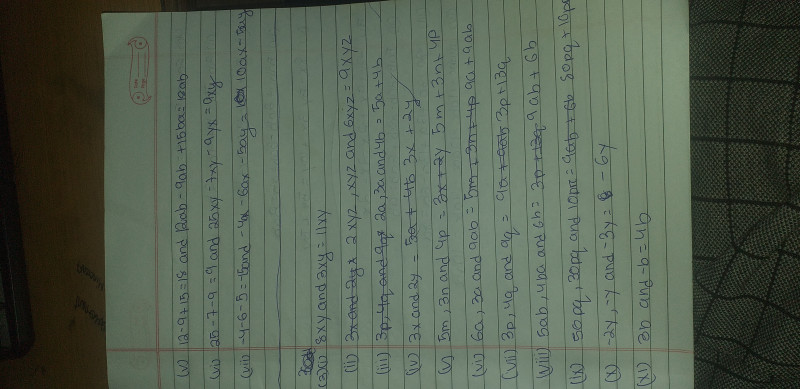 (v) 12-9+15=18 and 12ab-9ab+15ba=18ab
(vi) 25-7-9=9 and 25xy-7xy-9yx=9xy
(vii) -4-6-5=-15 and -4x-6ax-5ay= 10ax-5ay
(3)(i) 8xy and 3xy=11xy
(ii) 3x and 2y 2xyz, xyz and 6xyz=9xyz
(iii) 3p, 4q and 9p 2a, 3a and 4b=5a+4b
(iv) 3x and 2y = 5a+4b 3x+2y
(v) 5m, 3n and 4p = 3x+2y 5m+3n+4p
(vi) 6a, 3a and 9ab = 5m+3n+4p 9a+9ab
(vii) 3p, 4q and 9q = 9a+9ab 3p+13q
(viii) 5ab, 4ba and 6b = 3p+13q 9ab+6b
(ix) 50pq, 30pq and 10pr = 9ab+6b 80pq+10pr
(x) -2y, -y and -3y = -6y
(xi) 5b and -b=4b